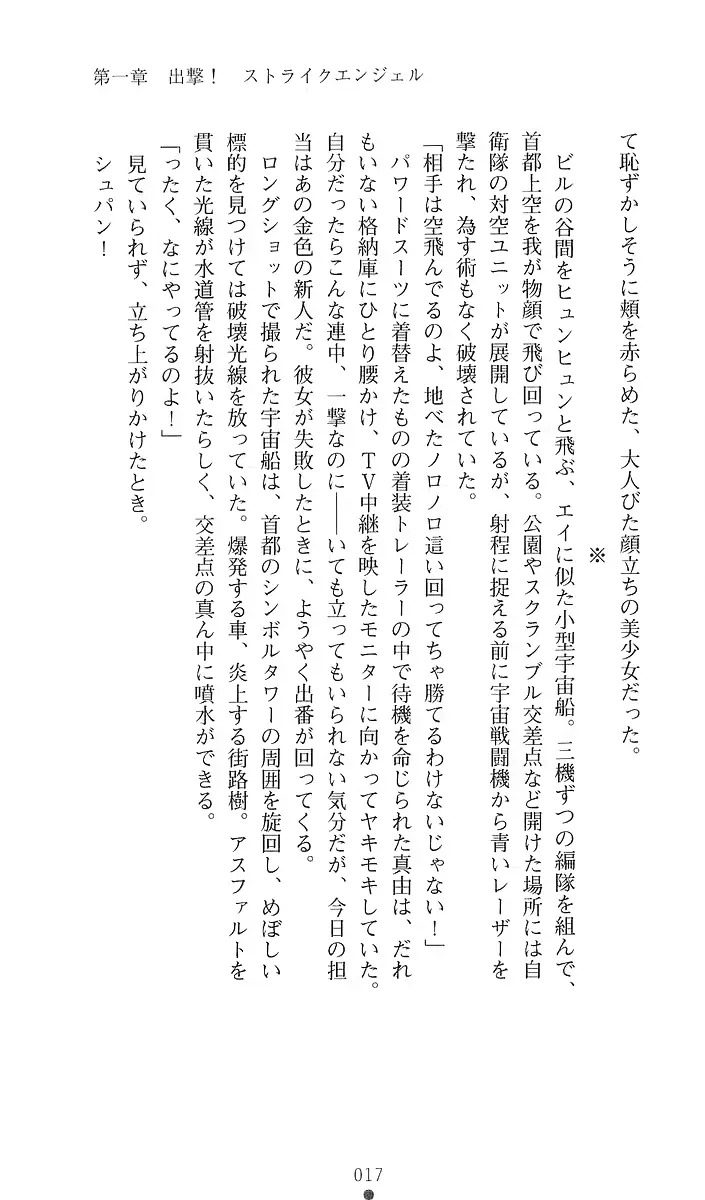 第一章　出撃！　ストライクエンジェル
て恥ずかしそうに頬を赤らめた、大人びた顔立ちの美少女だった。
※
ビルの谷間をヒュンヒュンと飛ぶ、エイに似た小型宇宙船。三機ずつの編隊を組んで、
首都上空を我が物顔で飛び回っている。公園やスクランブル交差点など開けた場所には自
衛隊の対空ユニットが展開しているが、射程に捉える前に宇宙戦闘機から青いレーザーを
撃たれ、為す術もなく破壊されていた。
「相手は空飛んでるのよ、地べたノロノロ這い回ってちゃ勝てるわけないじゃない！」
パワードスーツに着替えたものの着装トレーラーの中で待機を命じられた真由は、だれ
もいない格納庫にひとり腰かけ、ＴＶ中継を映したモニターに向かってヤキモキしていた。
自分だったらこんな連中、一撃なのに――いても立ってもいられない気分だが、今日の担
当はあの金色の新人だ。彼女が失敗したときに、ようやく出番が回ってくる。
ロングショットで撮られた宇宙船は、首都のシンボルタワーの周囲を旋回し、めぼしい
標的を見つけては破壊光線を放っていた。爆発する車、炎上する街路樹。アスファルトを
貫いた光線が水道管を射抜いたらしく、交差点の真ん中に噴水ができる。
「ったく、なにやってるのよ！」
見ていられず、立ち上がりかけたとき。
シュパン！
017